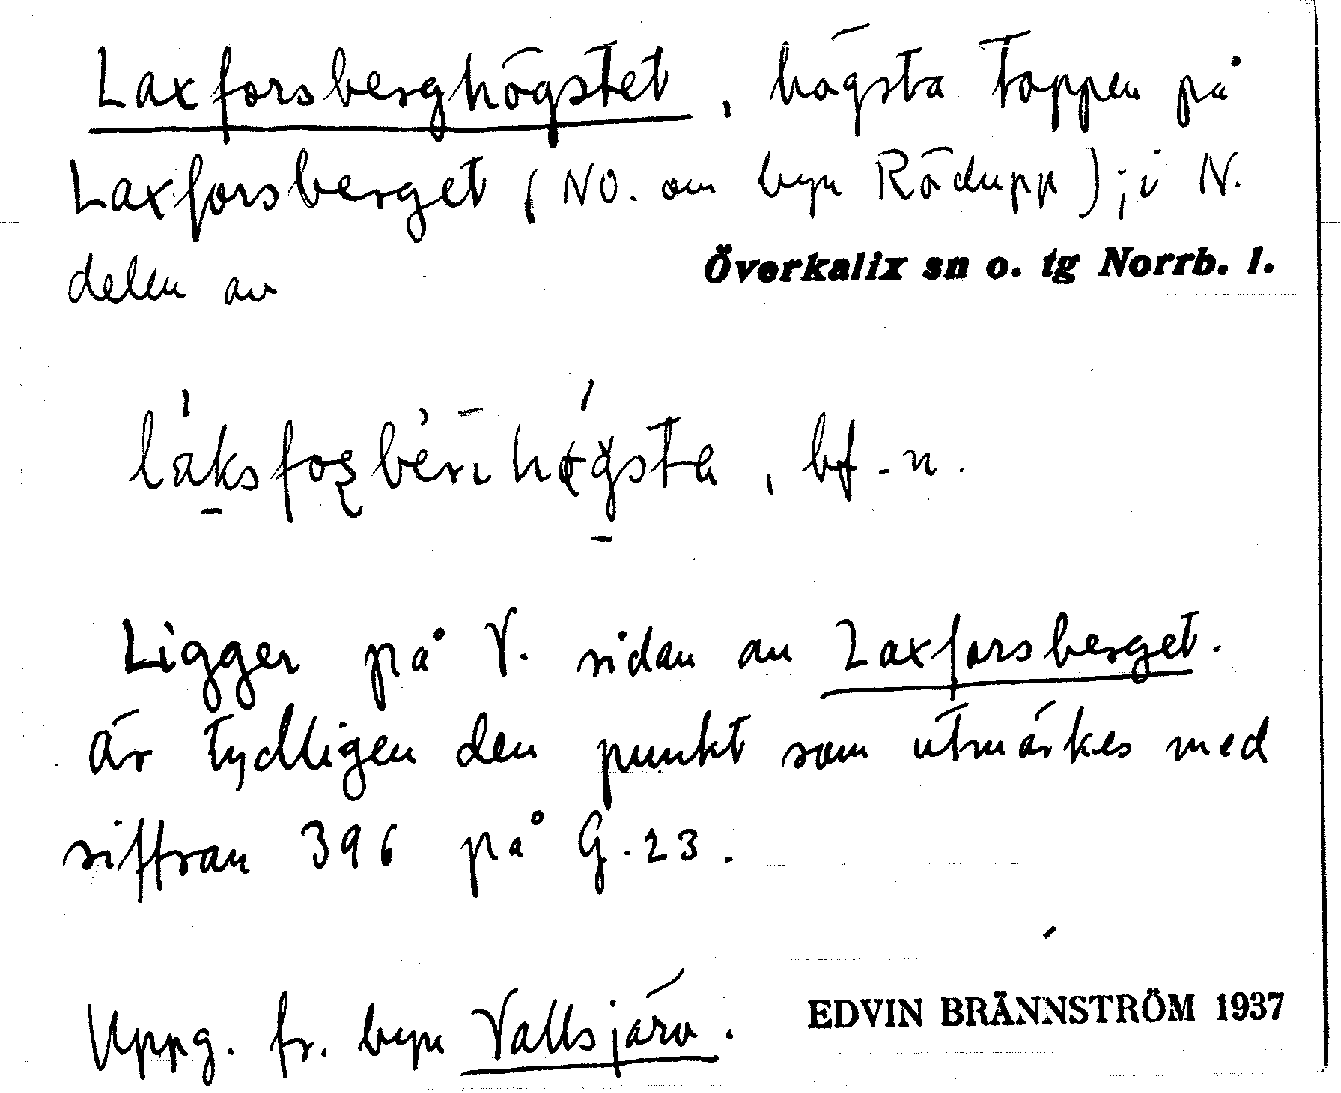 Laxforsberghögstet, högsta toppen på
Laxforsberget (NO. om byn Rödupp); i N.
delen av Överkalix sn o. tg Norrb. l.
bf. n.
Ligger på V. sidan av Laxforsberget.
är tydligen den punkt som utmärkes med
siffran 396 på G.23.
Uppg. fr. byn Vallsjärv.
EDVIN BRÄNNSTRÖM 1937